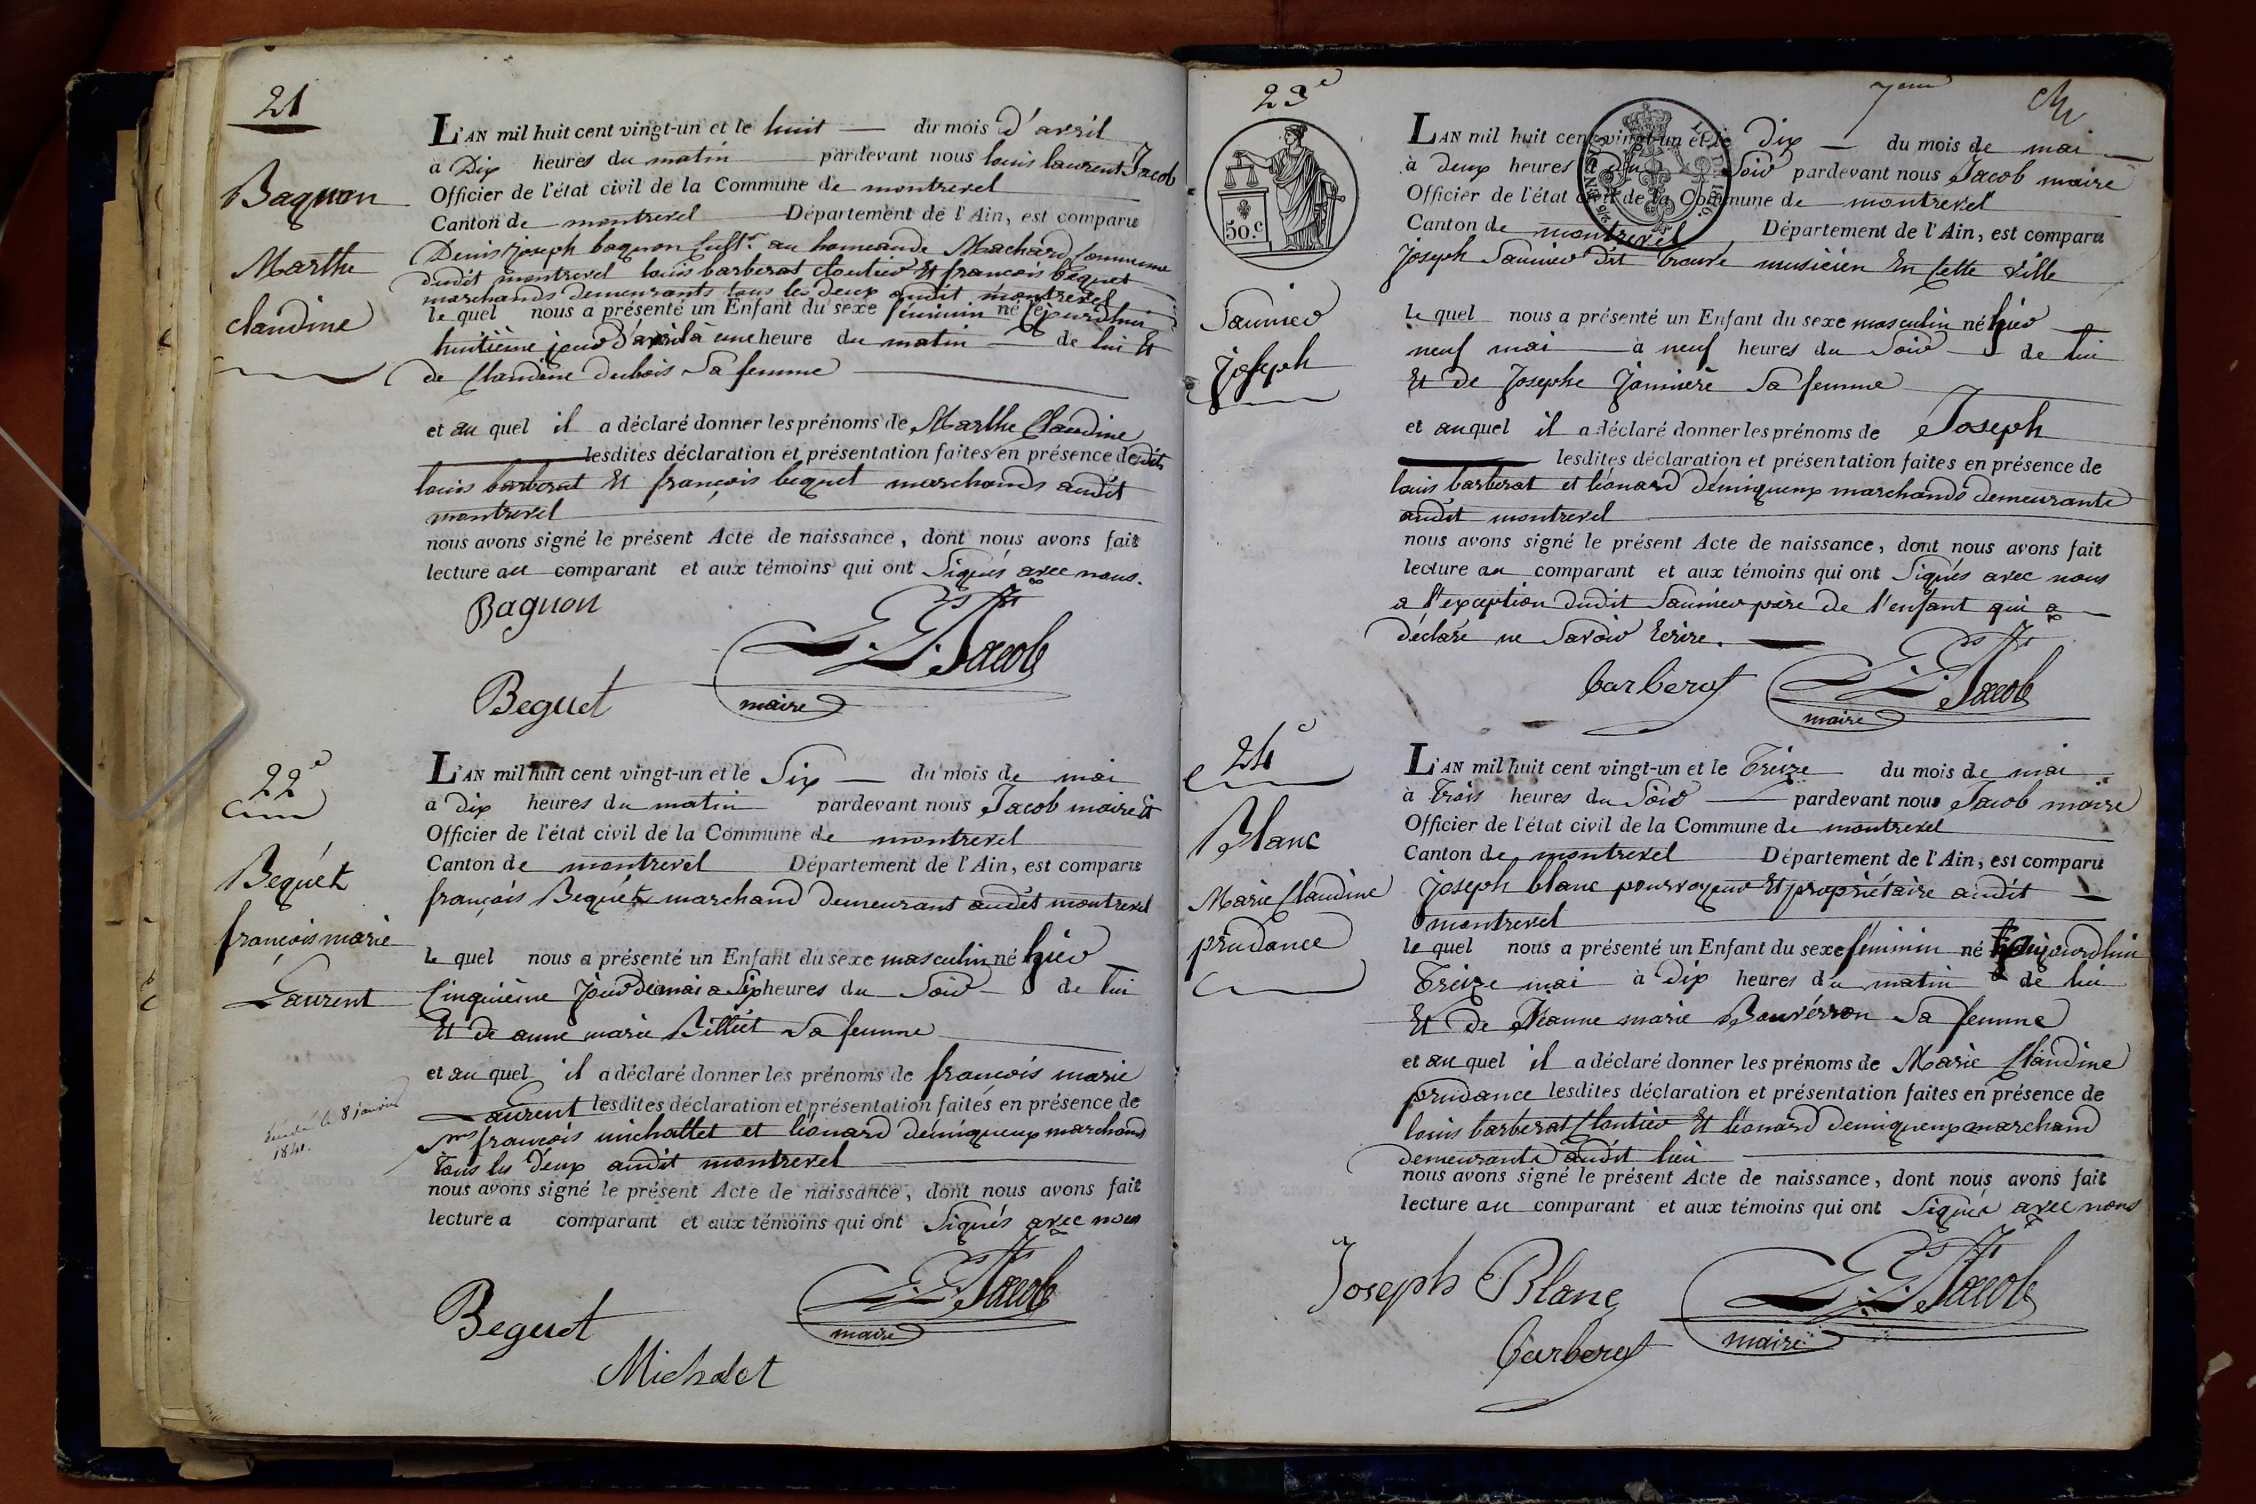 21
Bagnon
Marthe
claudine
L'AN mil huit cent vingt-un et le huit du mois d'avril
à Dix heures du matin pardevant nous louis laurent Jacob
Officier de l'état civil de la Commune de montrevel
Canton de montrevel Département de l'Ain, est comparu
Denis joseph bagnon au hameau de Machard Commune
dudit montrevel louis barberat cloutier Et françois bequet
marchands demeurants tous les deux audit montrevel
le quel nous a présenté un Enfant du sexe féminin né aujourdhui
huitième jour d'avril à une heure du matin de lui Et
de Claudine dubois Sa femme
et au quel il a déclaré donner les prénoms de Marthe Claudine
lesdites déclaration et présentation faites en présence desdits
louis barberat Et françois bequet marchands audit
montrevel
nous avons signé le présent Acte de naissance, dont nous avons fait
lecture au comparant et aux témoins qui ont Signés avec nous.
Bagnon
L. L. Jacob
Beguet
maire
22e
Bequét
françois marie
Laurent
décédé le 8 janvier
L'AN mil huit cent vingt-un et le Six du mois de mai
à dix heures du matin pardevant nous Jacob maire Et
Officier de l'état civil de la Commune de montrevel
Canton de montrevel Département de l'Ain, est comparu
françois Bequét marchand demeurant audit montrevel
le quel nous a présenté un Enfant du sexe masculin né hier
Cinquième jour de mai a Six heures du Soir de lui
Et de anne marie Billiet Sa femme
et au quel il a déclaré donner les prénoms de françois marie
Laurent lesdites déclaration et présentation faites en présence de
Srs françois michallet et léonard déminqueux marchand
tous les deux audit montrevel
nous avons signé le présent Acte de naissance, dont nous avons fait
lecture a comparant et aux témoins qui ont Signés avec nous
L. L. Jacob
Beguet
maire
Michalet
23e
7eme
50.c
Saunier
joseph
L'AN mil huit cent vingt-un et le dix du mois de mai
à deux heures du Soir pardevant nous Jacob maire
Officier de l'état civil de la Commune de montrevel
Canton de montrevel Département de l'Ain, est comparu
joseph Saunier dit trouvé musicien En cette ville
le quel nous a présenté un Enfant du sexe masculin né hier
neuf mai à neuf heures du Soir de lui
Et de Josephe Sa femme
et au quel il a déclaré donner les prénoms de Joseph
lesdites déclaration et présentation faites en présence de
louis barberat et léonard déminqueux marchands demeurants
audit montrevel
nous avons signé le présent Acte de naissance, dont nous avons fait
lecture au comparant et aux témoins qui ont Signés avec nous
a l'exception dudit Saunier père de l'enfant qui a
déclaré ne Savoir Ecrire.
barberat
L. L. Jacob
maire
24e
Blanc
Marie Claudine
prudance
L'AN mil huit cent vingt-un et le treize du mois de mai
à trois heures du Soir pardevant nous Jacob maire
Officier de l'état civil de la Commune de montrevel
Canton de montrevel Département de l'Ain, est comparu
joseph blanc pourvoyeur Et propriétaire audit
montrevel
le quel nous a présenté un Enfant du sexe féminin né aujourdhui
Treize mai à dix heures du matin de lui
Et de Jeanne marie Bouvérron Sa femme
et au quel il a déclaré donner les prénoms de Marie Claudine
prudance lesdites déclaration et présentation faites en présence de
louis barberat Cloutier Et léonard deminqueux marchand
demeurants audit lieu
nous avons signé le présent Acte de naissance, dont nous avons fait
lecture au comparant et aux témoins qui ont Signés avec nous
Joseph Blanc
L. L. Jacob
barberat
maire